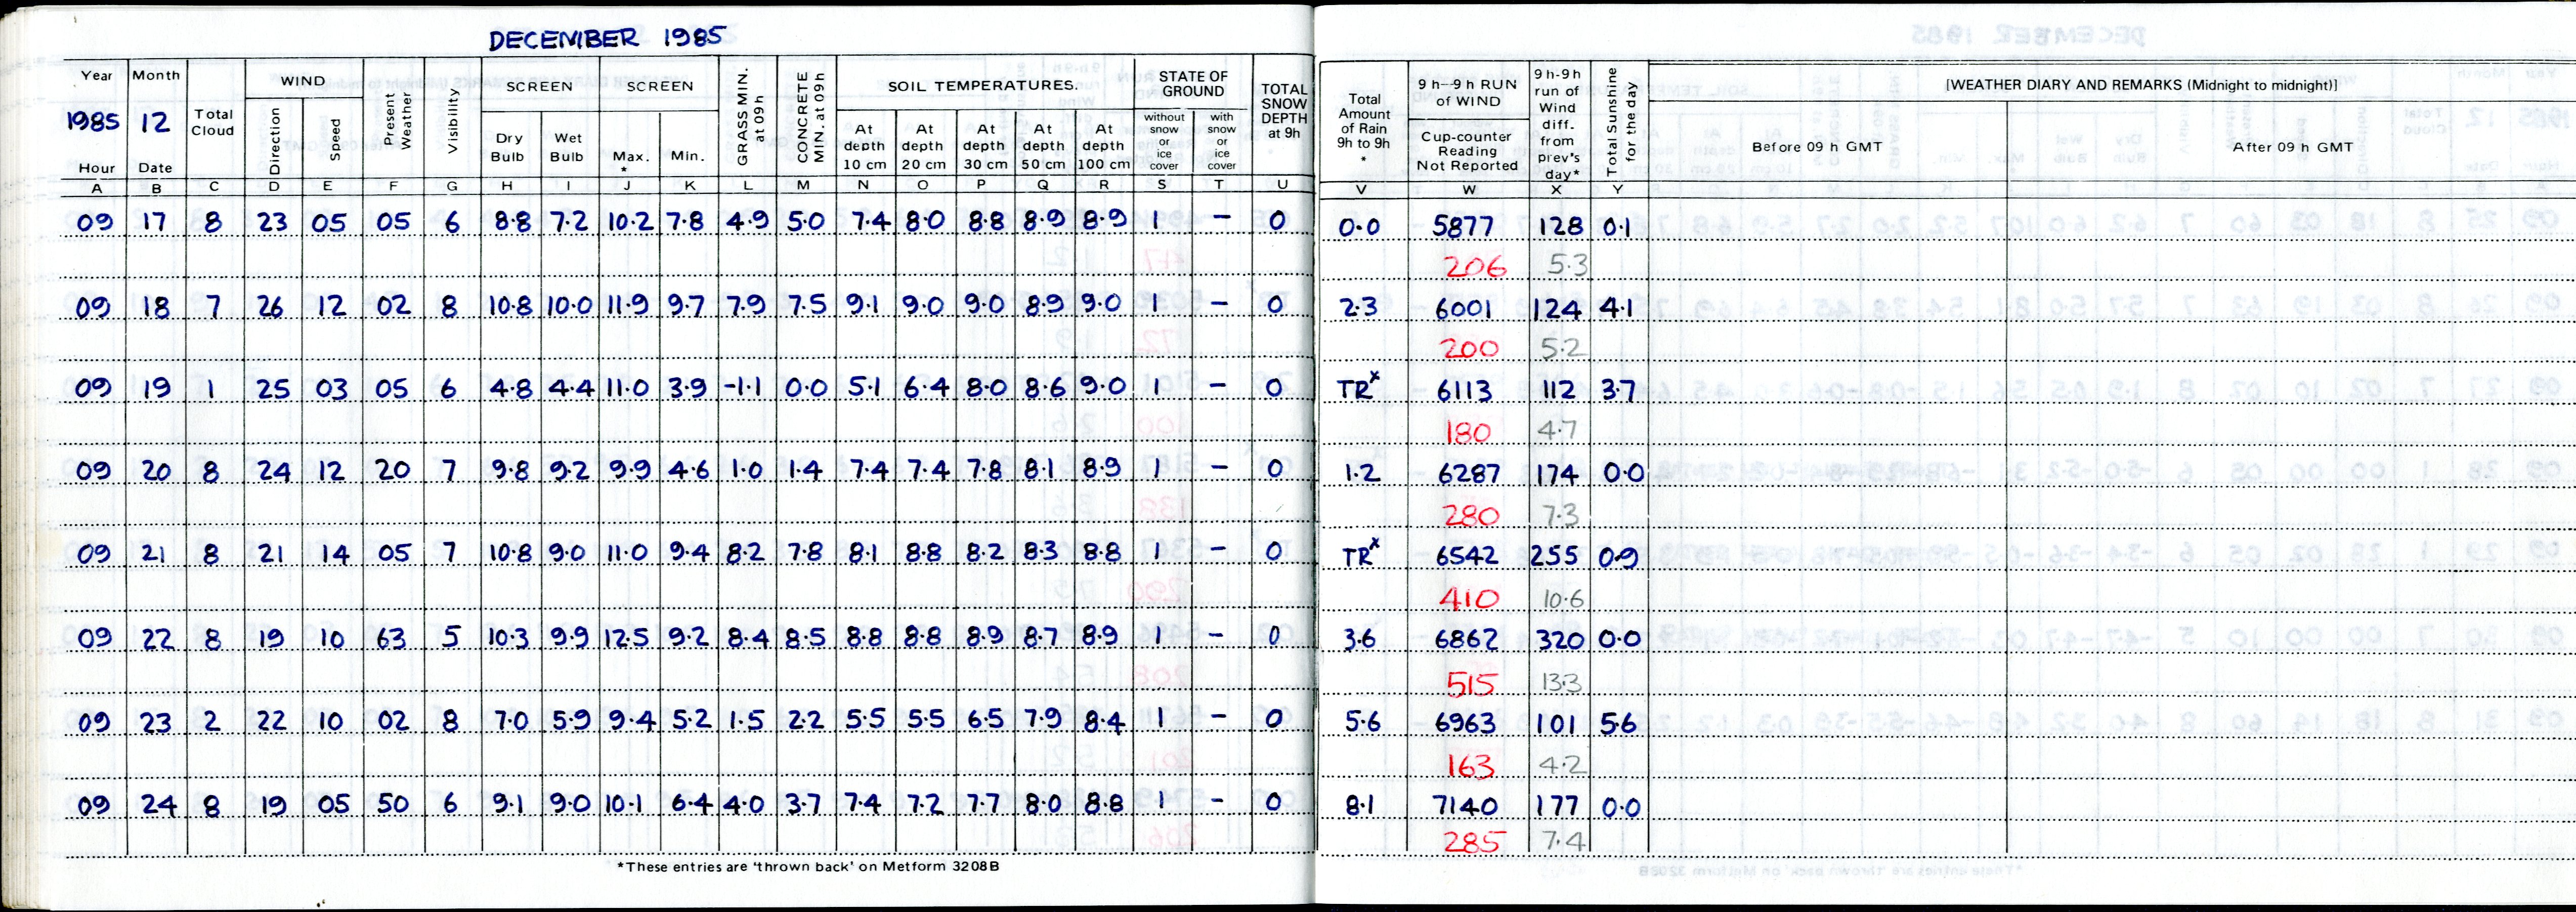 DECEMBER 1985
Year Month Total Cloud WIND Present Weather Visibility SCREEN SCREEN GRASS MIN. at 09h CONCRETE MIN. at 09h SOIL TEMPERATURES. STATE OF GROUND TOTAL SNOW DEPTH at 9h Total Amount of Rain 9h to 9h * 9 h–9 h RUN of WIND 9 h-9 h run of Wind diff. from prev's day* Total Sunshine for the day [WEATHER DIARY AND REMARKS (Midnight to midnight)]
1985 12 Direction Speed Dry Bulb Wet Bulb Max. * Min. At depth 10 cm At depth 20 cm At depth 30 cm At depth 50 cm At depth 100 cm without snow or ice cover with snow or ice cover Cup-counter Reading Not Reported Before 09 h GMT After 09 h GMT
Hour Date
A B C D E F G H I J K L M N O P Q R S T U V W X Y
09 17 8 23 05 05 6 8.8 7.2 10.2 7.8 4.9 5.0 7.4 8.0 8.8 8.9 8.9 1 – 0 0.0 5877 128 0.1
206 5.3
09 18 7 26 12 02 8 10.8 10.0 11.9 9.7 7.9 7.5 9.1 9.0 9.0 8.9 9.0 1 – 0 2.3 6001 124 4.1
200 5.2
09 19 1 25 03 05 6 4.8 4.4 11.0 3.9 -1.1 0.0 5.1 6.4 8.0 8.6 9.0 1 – 0 TRx 6113 112 3.7
180 4.7
09 20 8 24 12 20 7 9.8 9.2 9.9 4.6 1.0 1.4 7.4 7.4 7.8 8.1 8.9 1 – 0 1.2 6287 174 0.0
280 7.3
09 21 8 21 14 05 7 10.8 9.0 11.0 9.4 8.2 7.8 8.1 8.8 8.2 8.3 8.8 1 – 0 TRx 6542 255 0.9
410 10.6
09 22 8 19 10 63 5 10.3 9.9 12.5 9.2 8.4 8.5 8.8 8.8 8.9 8.7 8.9 1 – 0 3.6 6862 320 0.0
515 13.3
09 23 2 22 10 02 8 7.0 5.9 9.4 5.2 1.5 2.2 5.5 5.5 6.5 7.9 8.4 1 – 0 5.6 6963 101 5.6
163 4.2
09 24 8 19 05 50 6 9.1 9.0 10.1 6.4 4.0 3.7 7.4 7.2 7.7 8.0 8.8 1 – 0 8.1 7140 177 0.0
285 7.4
*These entries are 'thrown back' on Metform 3208B